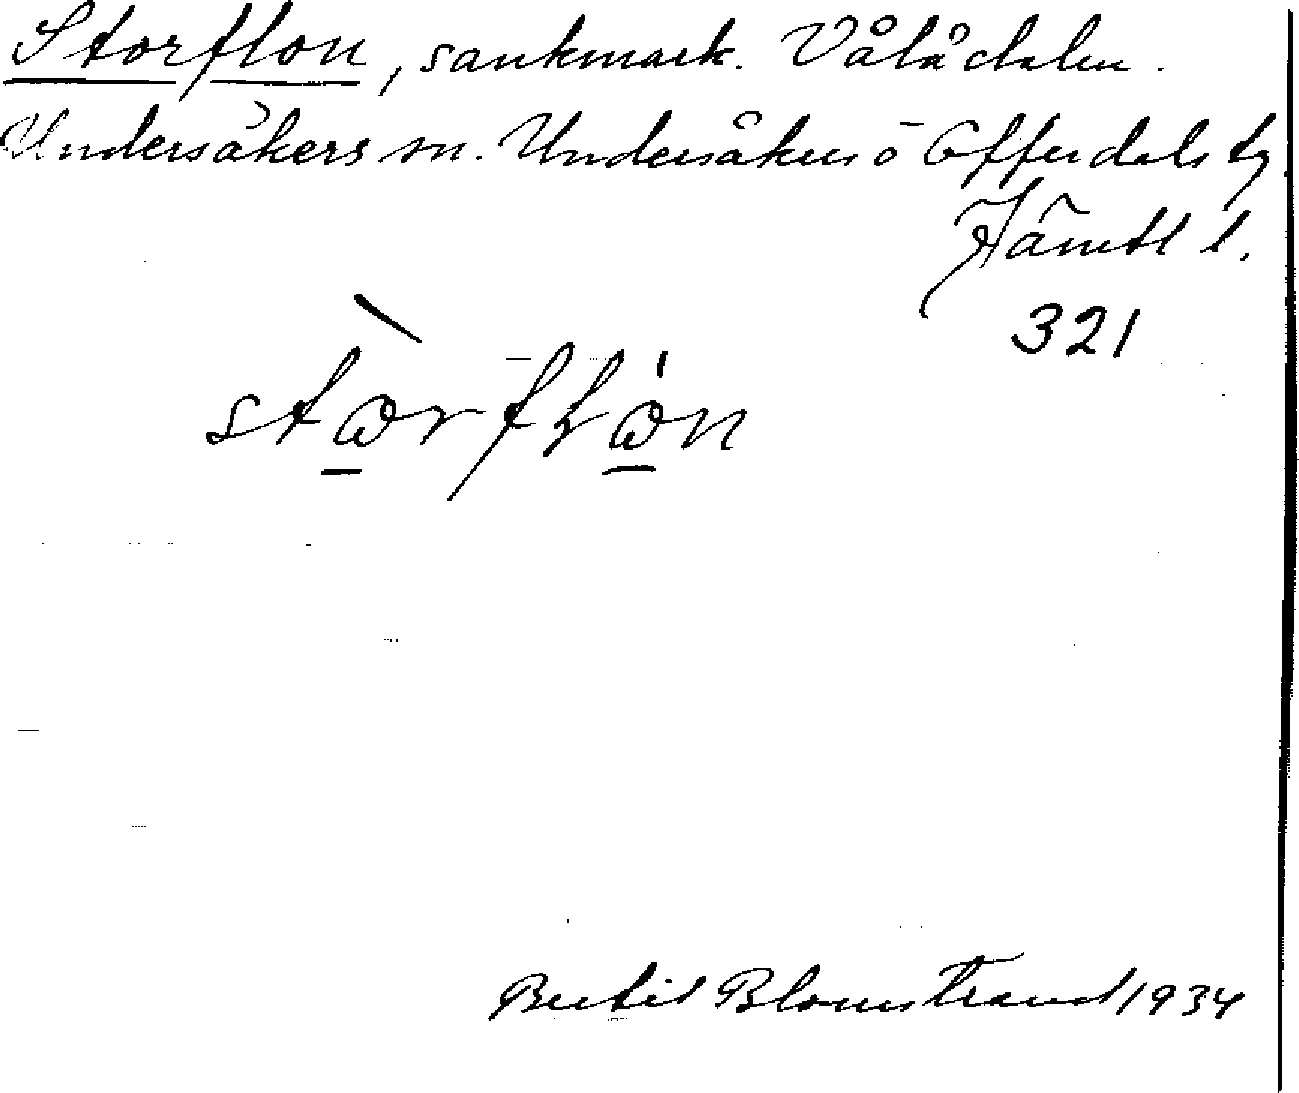 Storflon, sankmark. Vålådalen.
Undersåkers sn. Undersåkers o Offerdals tg
Jämtl l.
321
stωrflωn
Bertil Blomstrand 1934